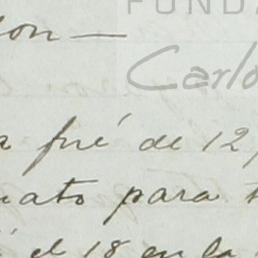 FUNDA
Carlo
ion —
a fué de 12,
uato para
é el 18 en la